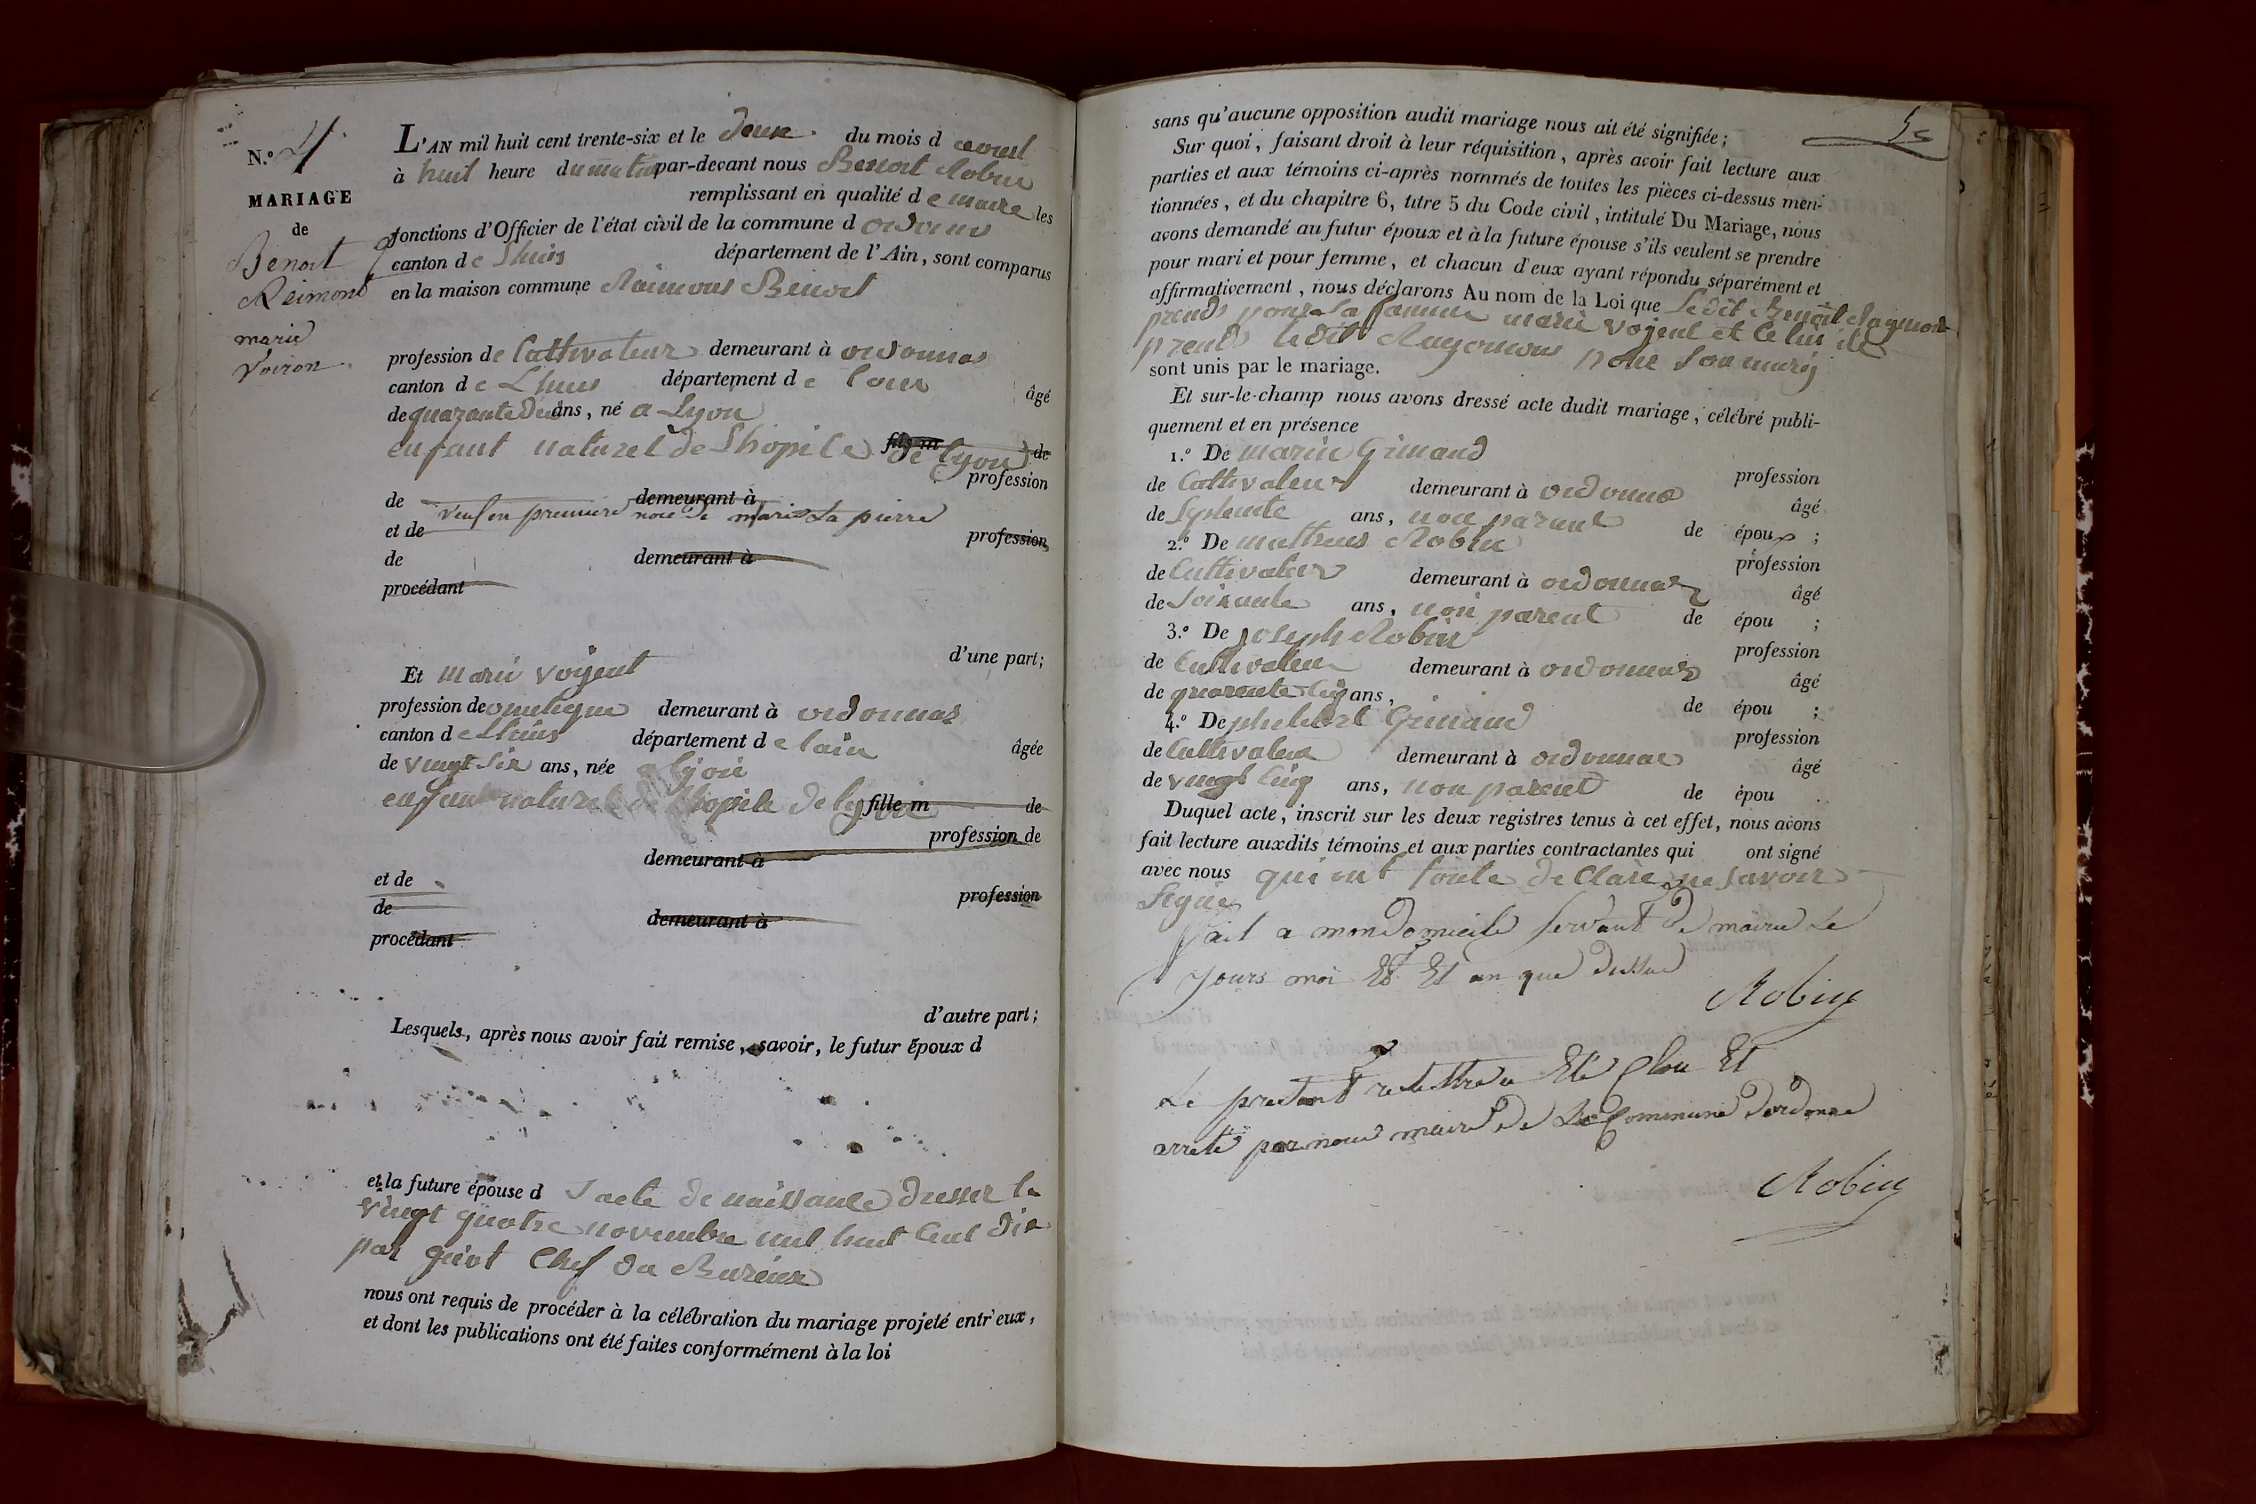 N.º 4
MARIAGE
de
Benoit
Reimond
marie
Voiron
L'AN mil huit cent trente-six et le deux du mois d avril
à huit heure du matin par-devant nous Benoit Robin
remplissant en qualité de maire les
fonctions d'Officier de l'état civil de la commune d ordonnas
canton de Lhuis département de l'Ain, sont comparus
en la maison commune Raimond Benoit
profession de Cultivateur demeurant à ordonnas
canton de Lhuis département de âgé
de quarante deux ans, né a Lyon
enfant naturel de Lhopital fils m de Lyon de
profession
de demeurant à
et de veuf en premiere noce de marie La pierre
profession
de demeurant à
procédant
d'une part;
Et marie voyent
profession de demeurant à ordonnas
canton de Lhuis département de lain âgée
de vingt six ans, née a lyon
enfant naturel de lhopile de lyon fille m de
profession de
demeurant à
et de profession
de demeurant à
procédant
d'autre part;
Lesquels, après nous avoir fait remise, savoir, le futur époux d
et la future épouse d Lacte de naissance dresser le
vingt quatre novembre mil huit Cent dix
par Chef du Bureau
nous ont requis de procéder à la célébration du mariage projeté entr'eux,
et dont les publications ont été faites conformément à la loi
sans qu'aucune opposition audit mariage nous ait été signifiée;
Sur quoi, faisant droit à leur réquisition, après avoir fait lecture aux
parties et aux témoins ci-après nommés de toutes les pièces ci-dessus men-
tionnées, et du chapitre 6, titre 5 du Code civil, intitulé Du Mariage, nous
avons demandé au futur époux et à la future épouse s'ils veulent se prendre
pour mari et pour femme, et chacun d'eux ayant répondu séparément et
affirmativement, nous déclarons Au nom de la Loi que Ledit Benoit Raymond
prends pour sa famme marie voyent et
prends ledit Raymond pour son mary
sont unis par le mariage.
Et sur-le-champ nous avons dressé acte dudit mariage, célébré publi-
quement et en présence
1.º De marin Grimand
profession
de Cultivateur demeurant à ordonnas âgé
de Septente ans, non parant de époux ;
2.º De mathieus Robin
profession
de Cultivateur demeurant à ordonnas âgé
de Soixante ans, non parent de épou ;
3.º De joseph Robin
profession
de Cultivateur demeurant à ordonnas âgé
de quarente Cinq ans, de épou ;
4.º De philibert Grimand
profession
de Cultivateur demeurant à ordonnas âgé
de vingt Cinq ans, non parent de épou .
Duquel acte, inscrit sur les deux registres tenus à cet effet, nous avons
fait lecture auxdits témoins et aux parties contractantes qui ont signé
avec nous qui ont toute declare ne savoir
Signé
fait a mon domicile servant de mairie Le
Jours moi Et an que dessus
Robin
Le present registre a Eté Clou Et
arreté par nous maire de La Commune dordonnas
Robin